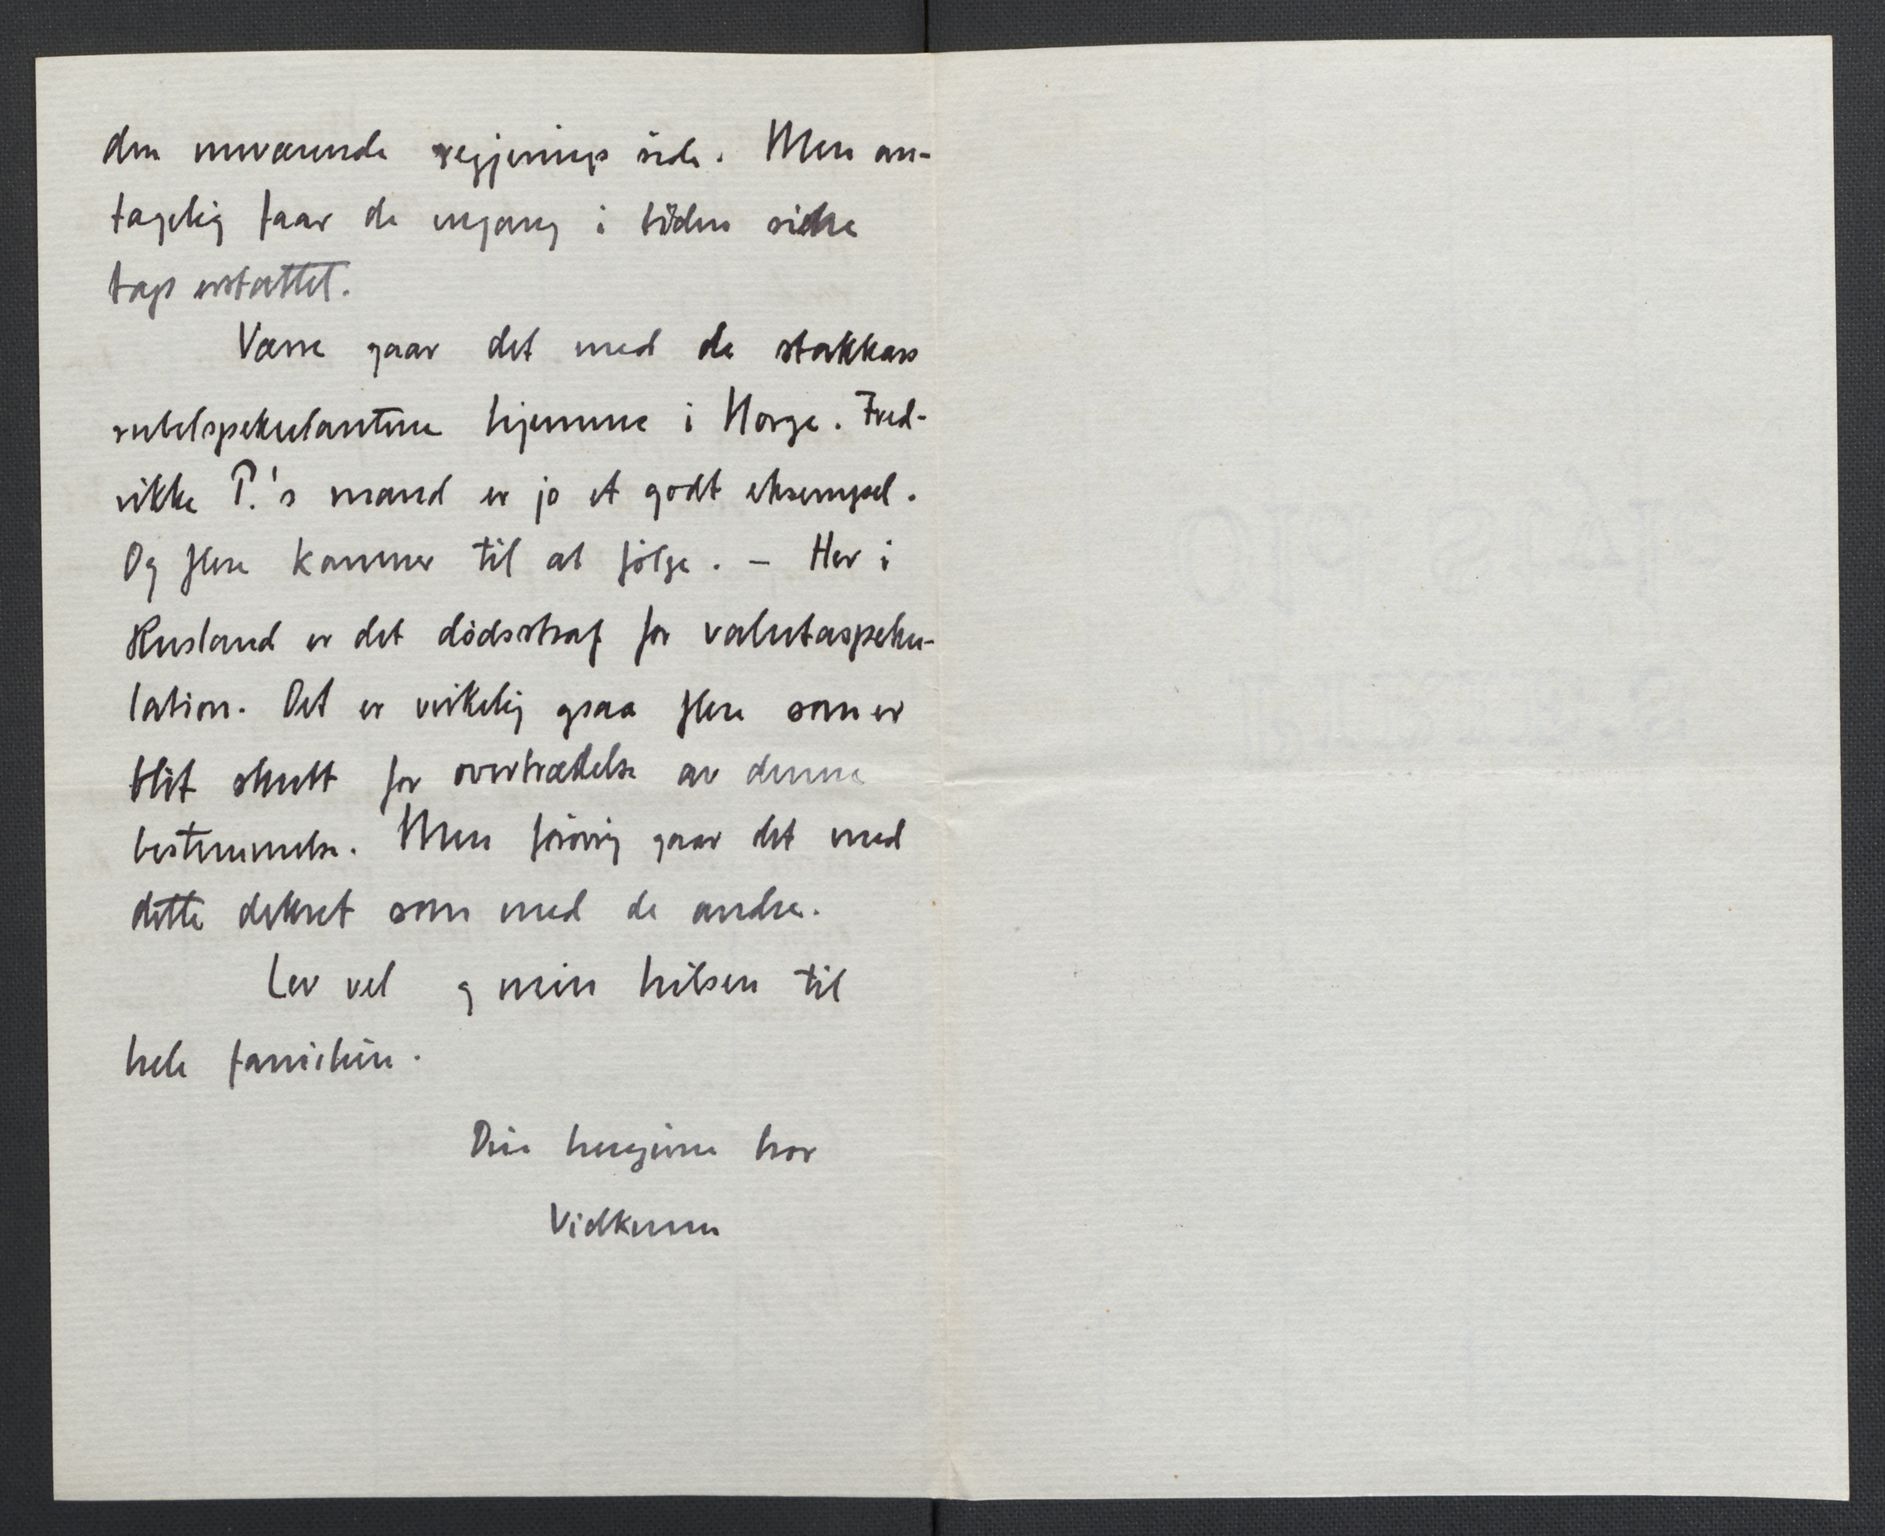 den nuværende regjerings side. Men an-
tagelig faar de engang i tiden sidste
taps erstattet.
Værre gaar det med de stakkars
rubelspekulanterne hjemme i Norge. Fred-
rikke P.'s mand er jo et godt eksempel.
Og flere kommer til at følge. – Her i
Rusland er det dødsstraf for valutaspeku-
lation. Det er virkelig ogsaa flere som er
blit skutt for overtrædelse av denne
bestemmelse. Men forøvrig gaar det med
dette dekret som med de andre.
Lev vel og min hilsen til
hele familien.
Din hengivne bror
Vidkunn